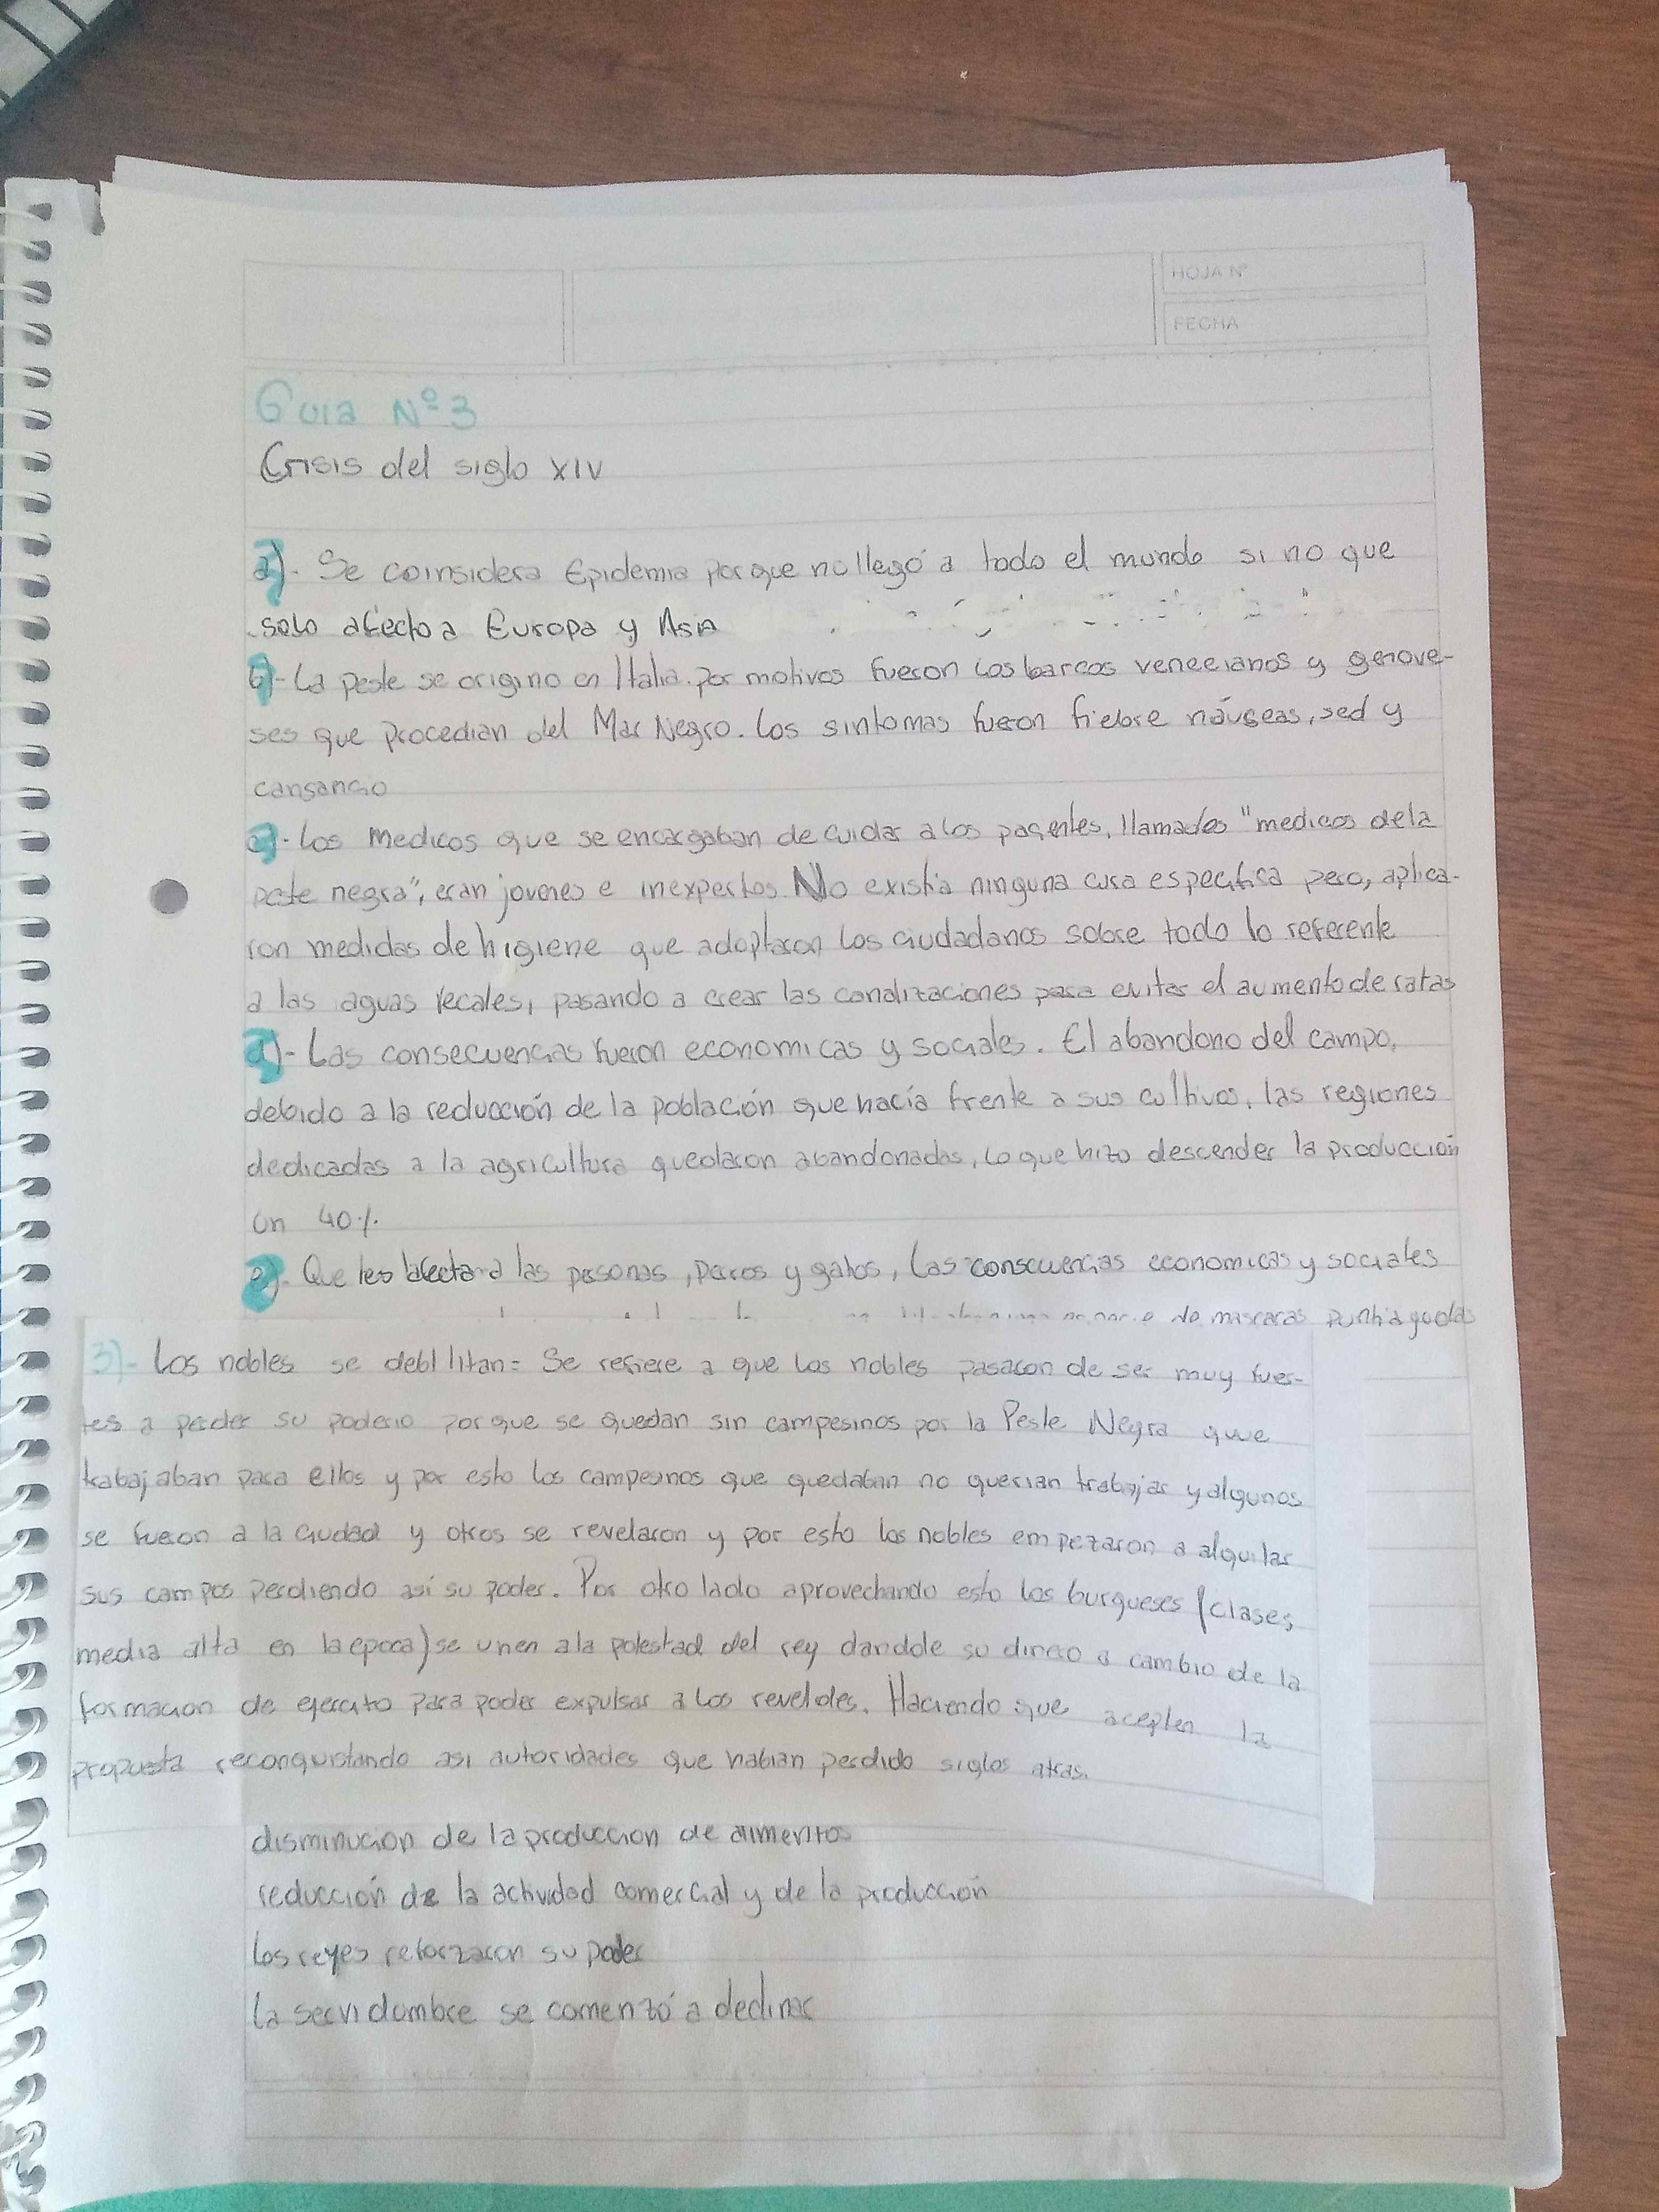 HOJA N°
FECHA
Guia Nº3
Crisis del siglo XIV
a)- Se coinsidera Epidemia porque no llegó a todo el mundo si no que
solo afecto a Europa y Asia
b)- La peste se origino en Italia. por motivos fueron los barcos venecianos y genove-
ses que procedian del Mar Negro. Los sintomas fueron fiebre náuseas, sed y
cansancio
c)- Los medicos que se encargaban de cuidar a los pacientes, llamados "medicos de la
peste negra", eran jovenes e inexpertos. No existía ninguna cura especifica pero, aplica-
ron medidas de higiene que adoptaron los ciudadanos sobre todo lo referente
a las aguas fecales, pasando a crear las canalizaciones para evitar el aumento de ratas
d)- Las consecuencias fueron economicas y sociales. El abandono del campo,
debido a la reducción de la población que hacía frente a sus cultivos, las regiones
dedicadas a la agricultura quedaron abandonadas, lo que hizo descender la producción
un 40%.
e)- Que les afecta a las personas, perros y gatos, Las consecuencias economicas y sociales
de mascaras puntiagudas
3)- Los nobles se debilitan= Se refiere a que los nobles pasaron de ser muy fuer-
tes a perder su poderio porque se quedan sin campesinos por la Peste Negra que
trabajaban para ellos y por esto los campesinos que quedaban no querian trabajar y algunos
se fueron a la ciudad y otros se revelaron y por esto los nobles empezaron a alquilar
sus campos perdiendo asi su poder. Por otro lado aprovechando esto los burgueses (clases
media alta en la epoca) se unen a la potestad del rey dandole su dinero a cambio de la
formacion de ejercito para poder expulsar a los reveldes. Haciendo que acepten la
propuesta reconquistando asi autoridades que habian perdido siglos atras.
disminucion de la produccion de alimentos
reducción de la actividad comercial y de la producción
los reyes reforzaron su poder
la servidumbre se comenzó a declinar